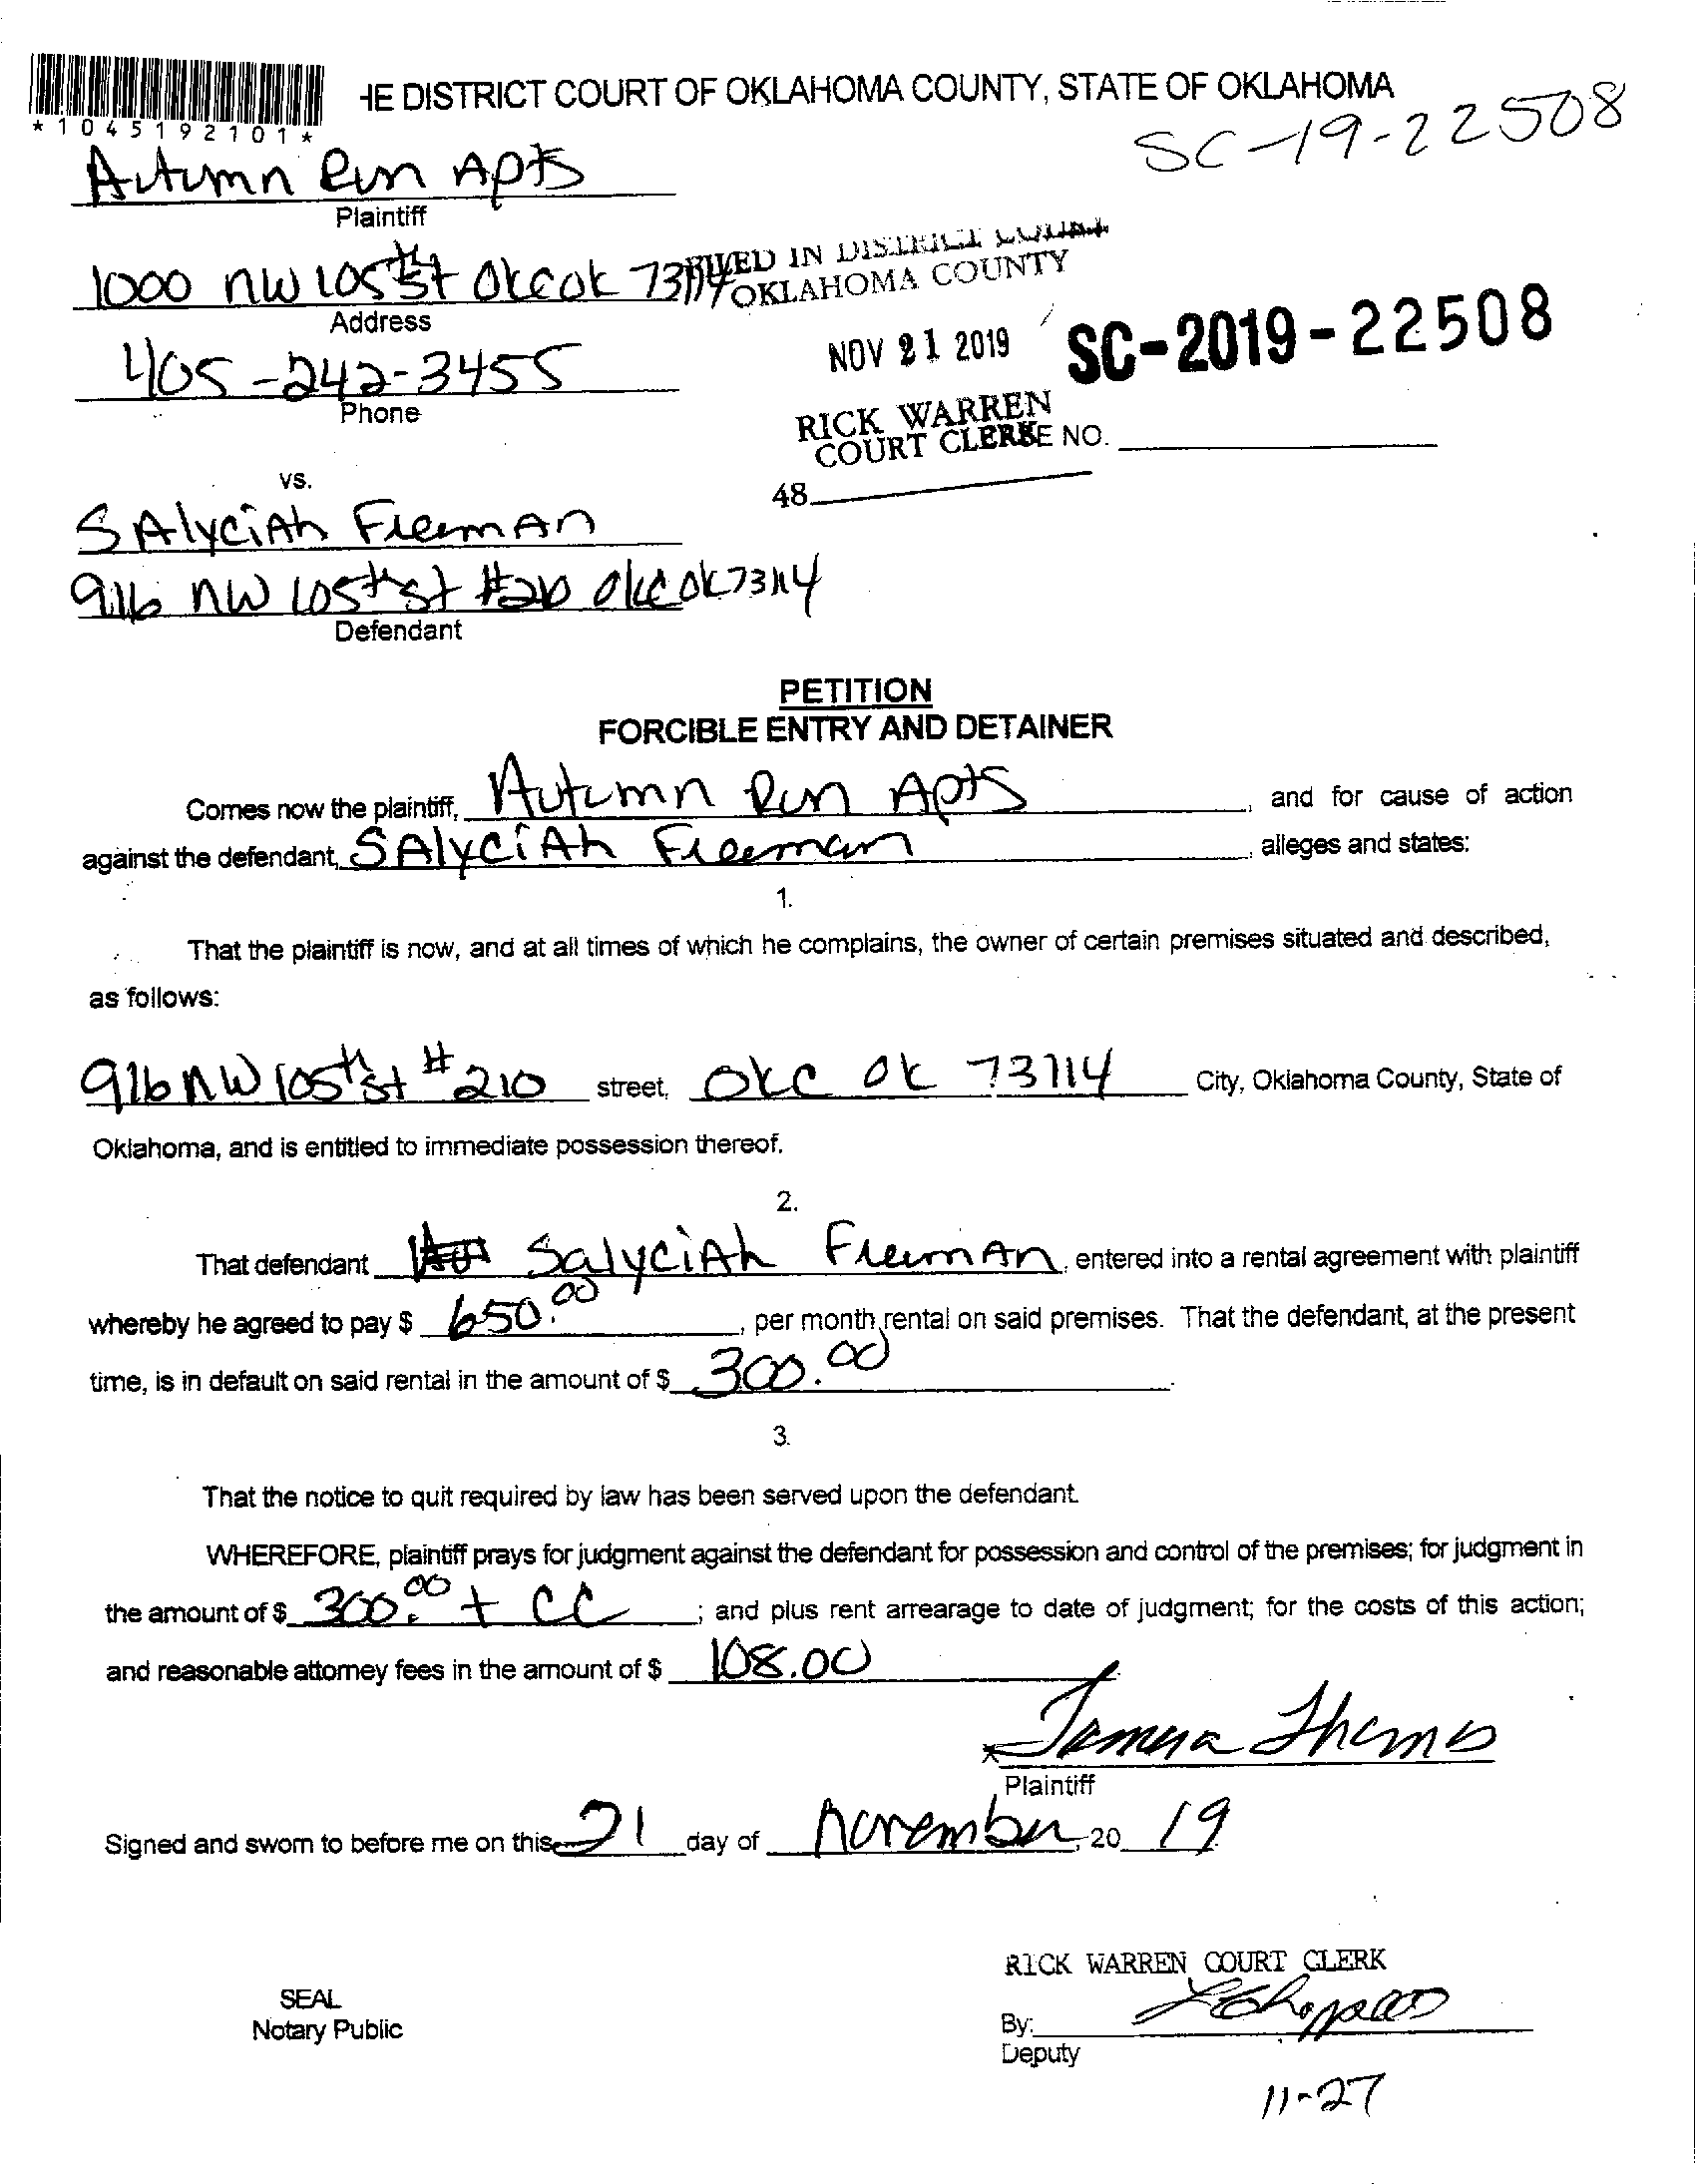 HE DISTRICT COURT OF OKLAHOMA COUNTY, STATE OF OKLAHOMA
*1045192101*
SC-19-22508
Autumn Run Apts
Plaintiff
1000 NW 105th St OKC OK 73114
FILED IN DISTRICT COURT
OKLAHOMA COUNTY
Address
NOV 21 2019
SC-2019-22508
405-242-3455
Phone
RICK WARREN
COURT CLERK
SE NO.
vs.
48
SAlyciAh FreemAn
916 NW 105th St #210 OKC OK 73114
Defendant
PETITION
FORCIBLE ENTRY AND DETAINER
Comes now the plaintiff, Autumn Run Apts, and for cause of action
against the defendant, SAlyciAh Freeman, alleges and states:
1.
That the plaintiff is now, and at all times of which he complains, the owner of certain premises situated and described,
as follows:
916 NW 105th St #210 street, OKC OK 73114 City, Oklahoma County, State of
Oklahoma, and is entitled to immediate possession thereof.
2.
That defendant SalyciAh FreemAn, entered into a rental agreement with plaintiff
whereby he agreed to pay $ 650.00, per month rental on said premises. That the defendant, at the present
time, is in default on said rental in the amount of $ 300.00.
3.
That the notice to quit required by law has been served upon the defendant.
WHEREFORE, plaintiff prays for judgment against the defendant for possession and control of the premises; for judgment in
the amount of $ 300.00 + CC; and plus rent arrearage to date of judgment; for the costs of this action;
and reasonable attorney fees in the amount of $ 108.00
Plaintiff
Signed and sworn to before me on this 21 day of November, 20 19
RICK WARREN COURT CLERK
SEAL
Notary Public
By:
Deputy
11-27